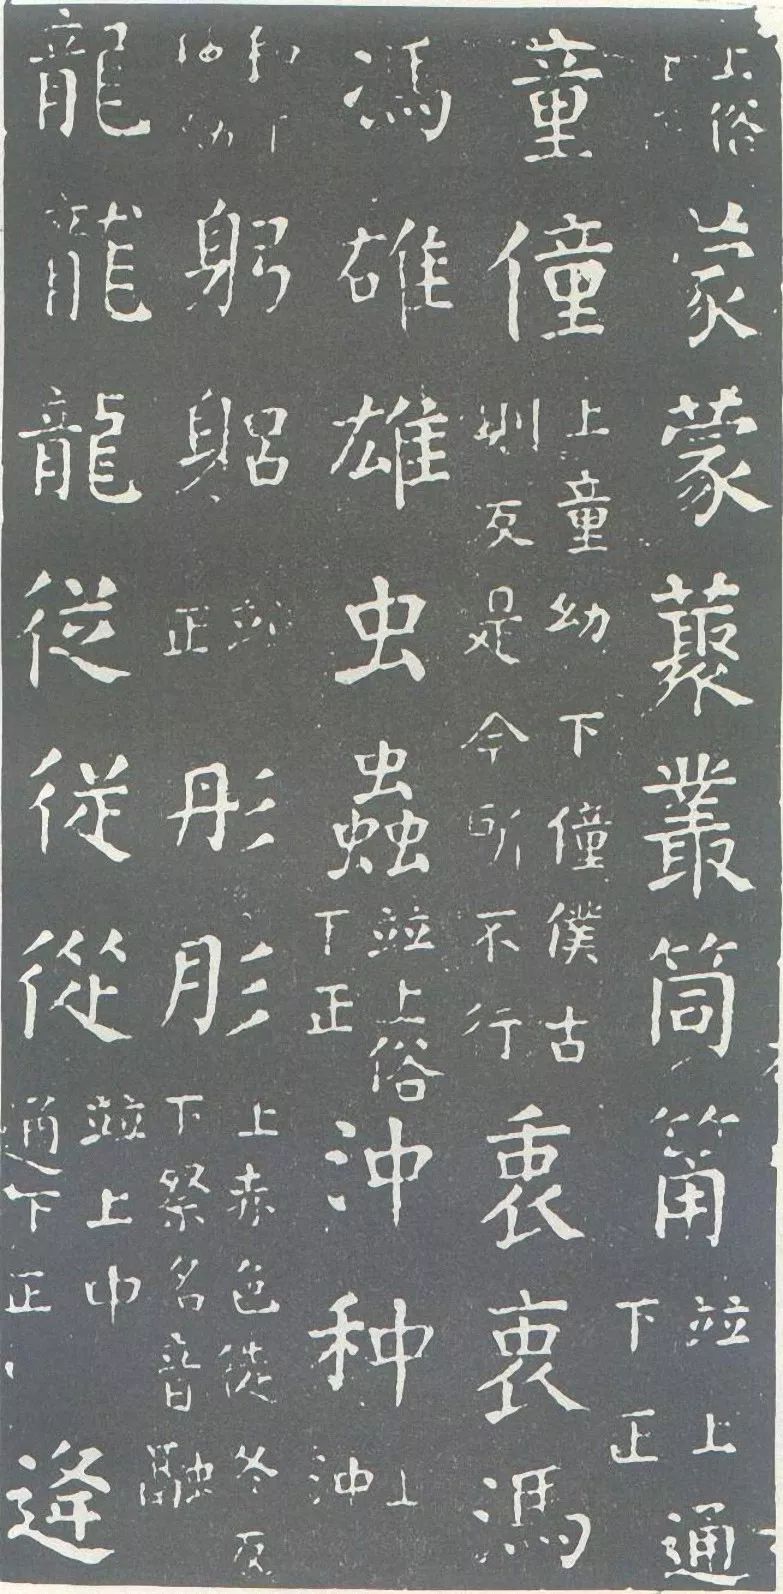 上俗蒙蒙藂叢筒筩並上通下正
童僮上童幼下僮僕古則反是今所不行衷衷馮
馮雄雄虫蟲並上俗下正沖种上沖
和下种幼躬躳並正彤肜上赤色徒冬反下祭名音融
龍龍龍従従從並上中通下正逢